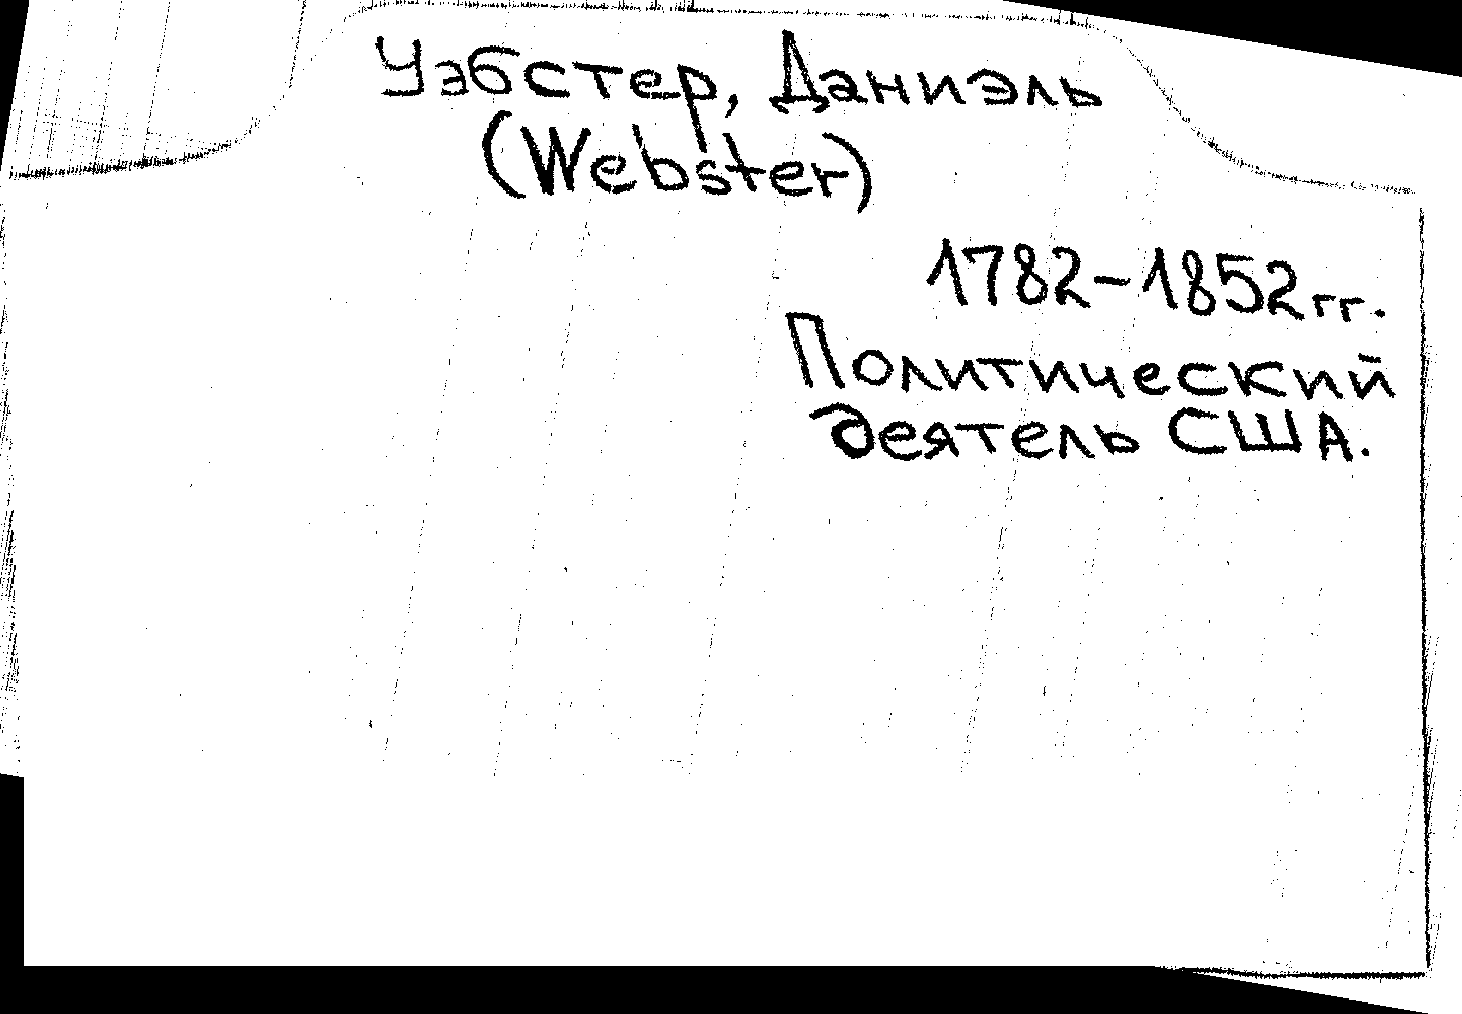 Уэбстер, Даниэль
(Webster)
1782-1852 гг.
Политический
деятель США.